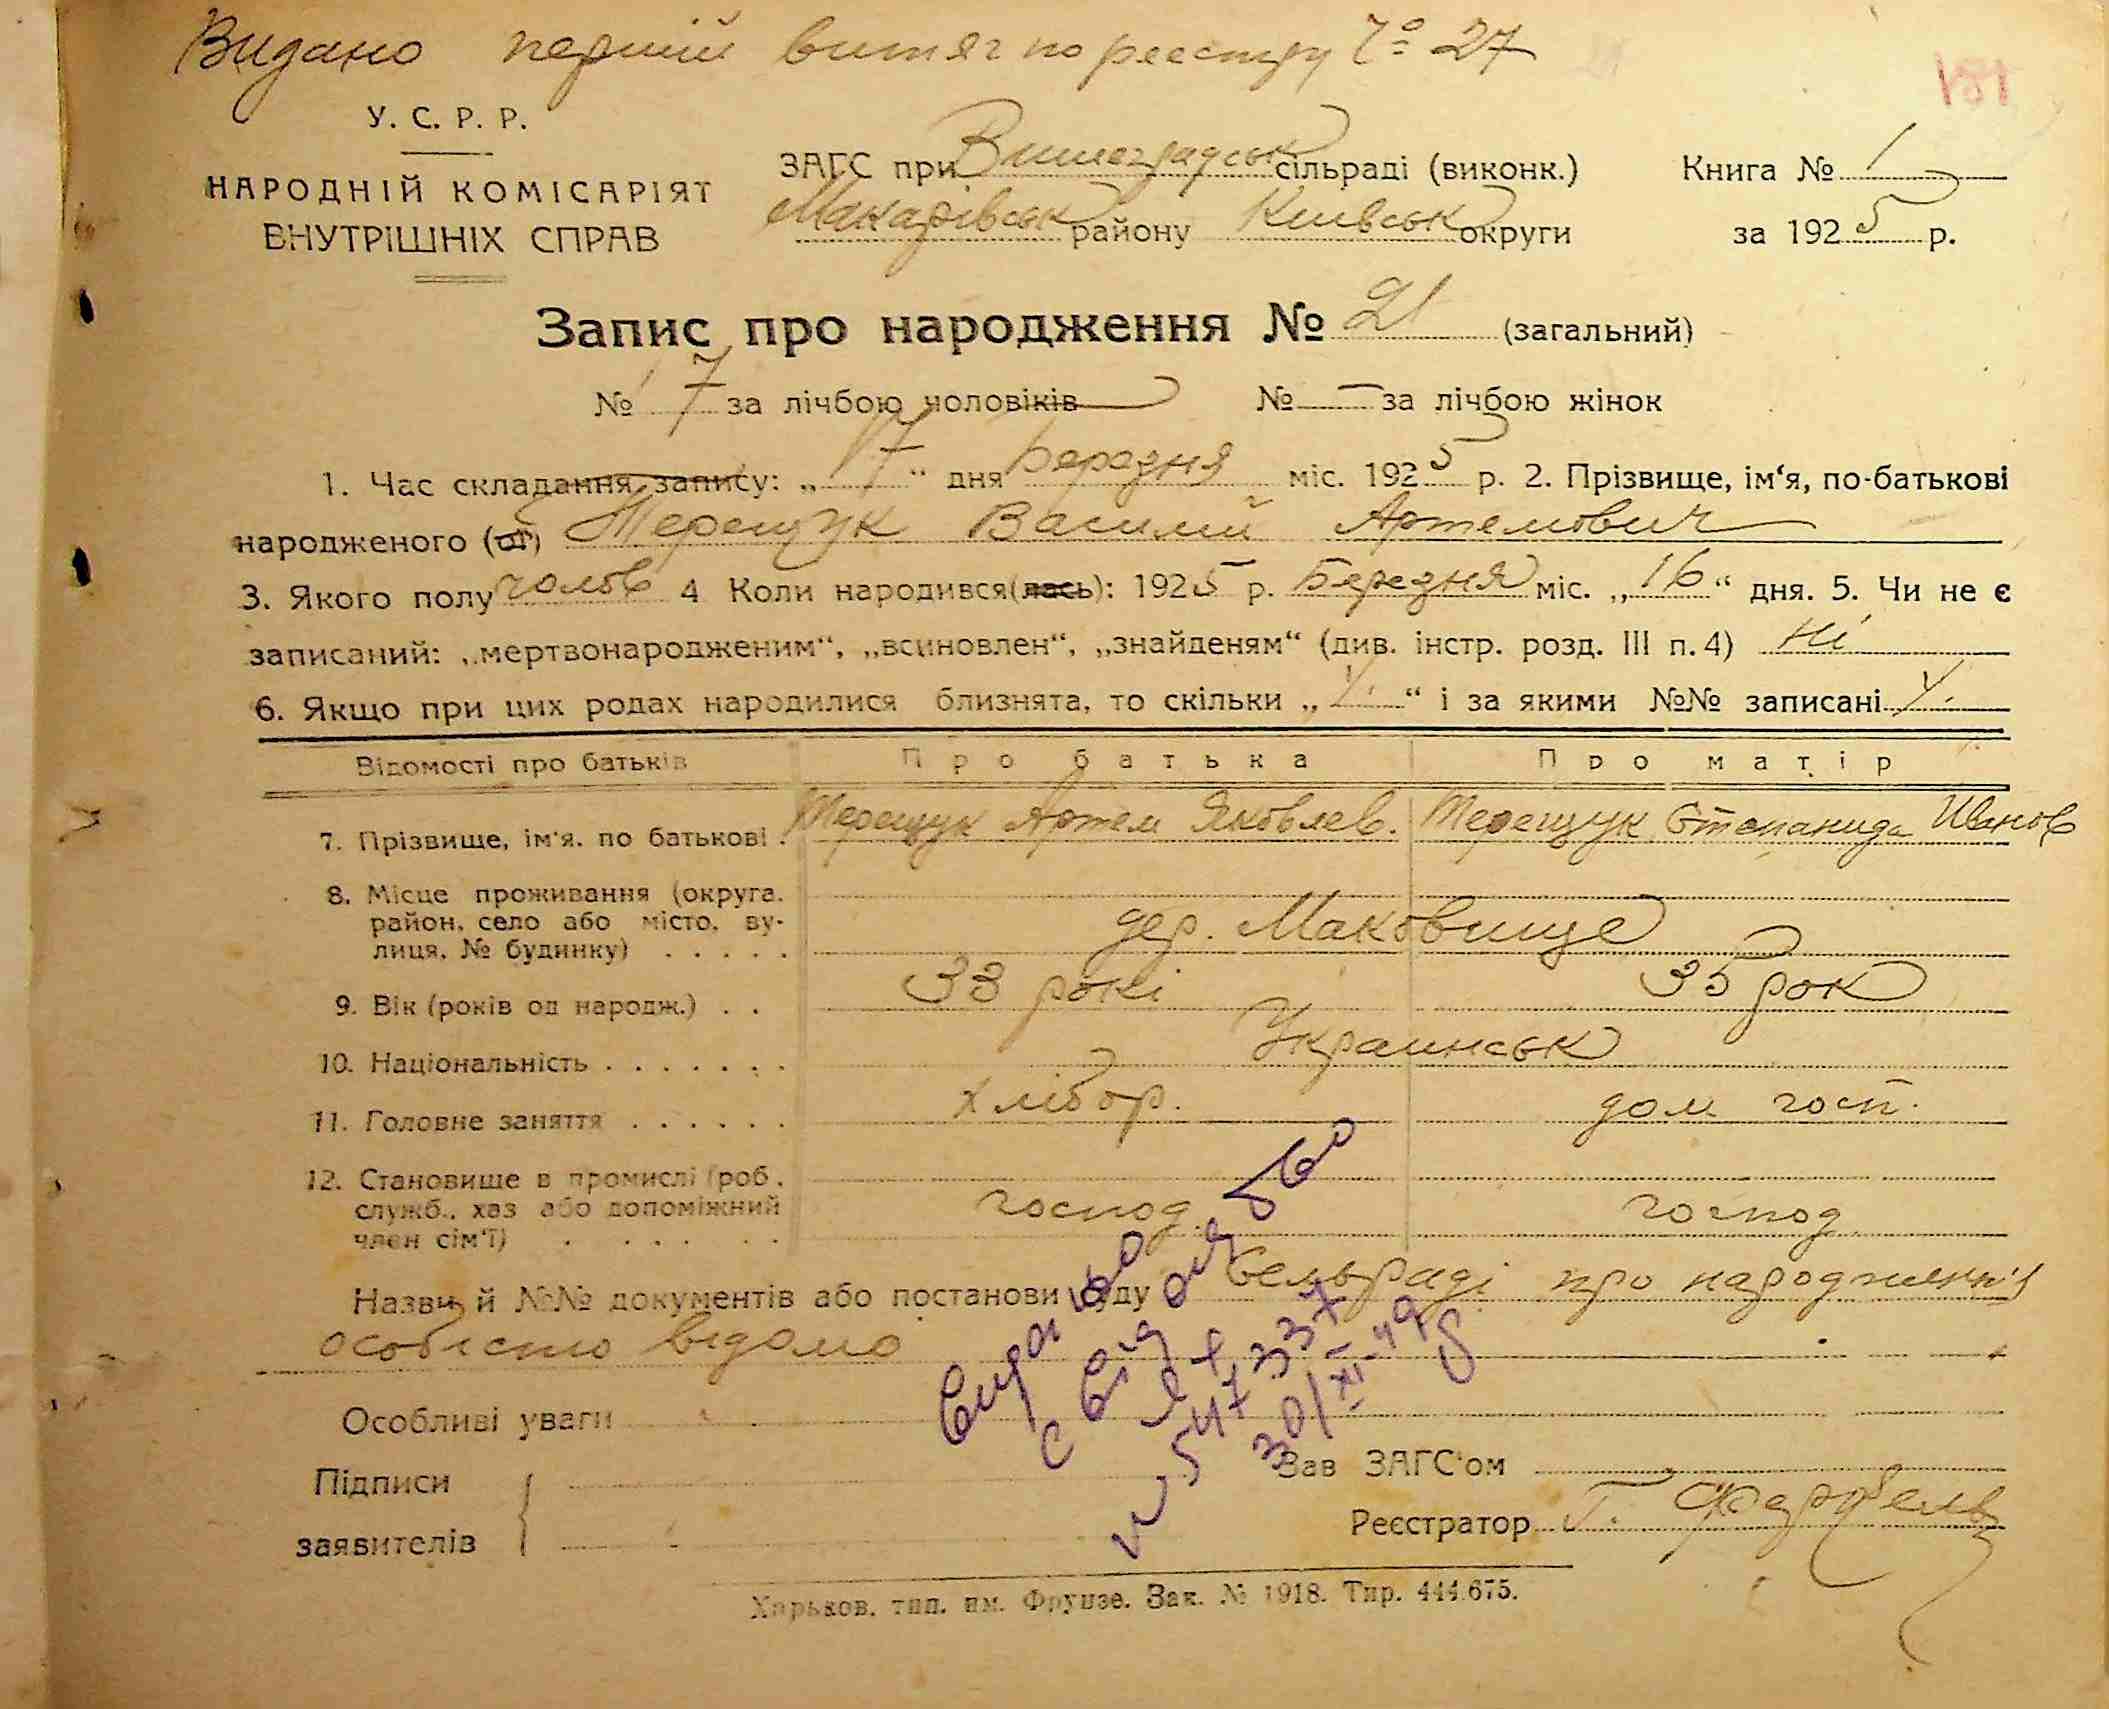 Видано перший витяг по реестру № 27
181
У. С. Р. Р.
НАРОДНІЙ КОМІСАРІЯТ
ВНУТРІШНІХ СПРАВ
ЗАГС при Вишеградськ сільраді (виконк.)
Макарівськ району Київськ округи
Книга № 1
за 1925 р.
Запис про народження № 21 (загальний)
№ 7 за лічбою чоловіків № — за лічбою жінок
1. Час складання запису: „17“ дня Березня міс. 1925 р. 2. Прізвище, ім‘я, по-батькові
народженого (ої) Терещук Василий Артемович
3. Якого полу чолов 4 Коли народився(лась): 1925 р. Березня міс. „16“ дня. 5. Чи не є
записаний: „мертвонародженим“, „всиновлен“, „знайденям“ (див. інстр. розд. III п. 4) ні
6. Якщо при цих родах народилися близнята, то скільки „ “ і за якими №№ записані
Відомості про батьків Про батька Про матір
7. Прізвище, ім‘я. по батькові . Терещук Артем Яковлев. Терещук Степанида Иванов
8. Місце проживання (округа.
район, село або місто, ву-
лиця, № будинку) . . . . . дер. Маковище
9. Вік (років од народж.) . . 33 рокі 35 рок
10. Національність . . . . . . . Украинськ
11. Головне заняття . . . . . . хлібор. дом госп.
12. Становище в промислі (роб.
служб., хаз або допоміжний
член сім‘ї) . . . . . . господ. господ
Назви й №№ документів або постанови суду Сельраді про народження
особисто відомо
Видано
с від
547337
30/XI-49
Особливі уваги
Підписи
заявителів
Зав ЗАГС‘ом
Реєстратор Г.
Харьков, тип. им. Фрунзе. Зак. № 1918. Тир. 444.675.